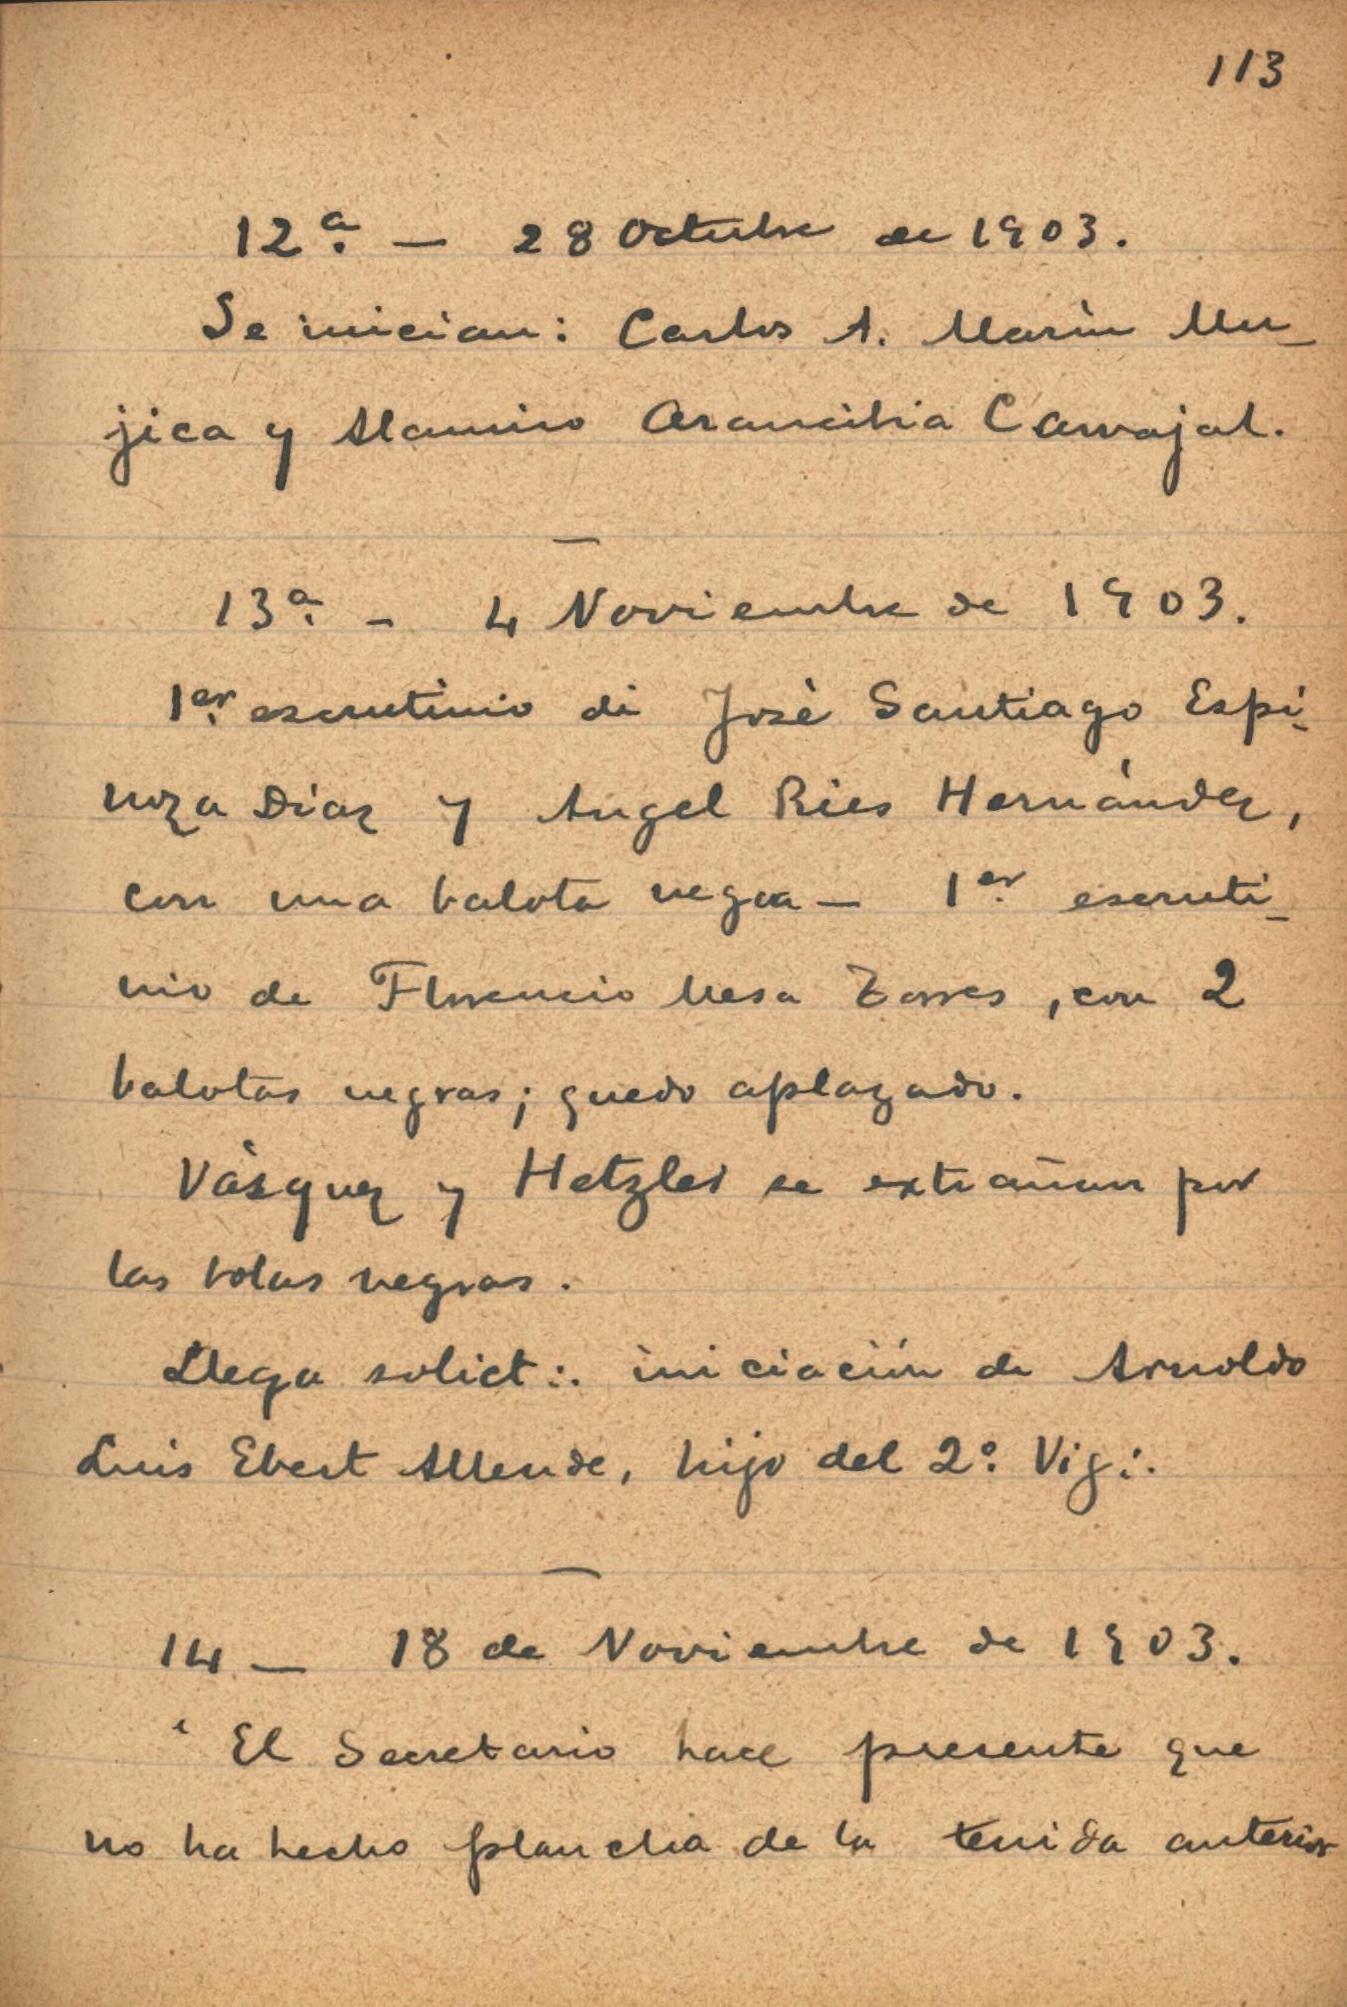 113
12ª. — 28 Octubre de 1903.
Se inician: Carlos A. Marín Mu-
jica y Alamiro Arancibia Carvajal.
—
13ª. - 4 Noviembre de 1903.
1er. escrutinio de José Santiago Espi-
noza Díaz y Angel Ries Hernández,
con una balota negra — 1er. escruti-
nio de Florencio Mesa Torres, con 2
balotas negras; quedo aplazado.
Vásquez y Hetzler se extrañan por
las bolas negras.
Llega solict∴ iniciación de Arnoldo
Luis Ebert Allende, hijo del 2º. Vig∴
—
14 — 18 de Noviembre de 1903.
El Secretario hace presente que
no ha hecho plancha de la tenida anterior